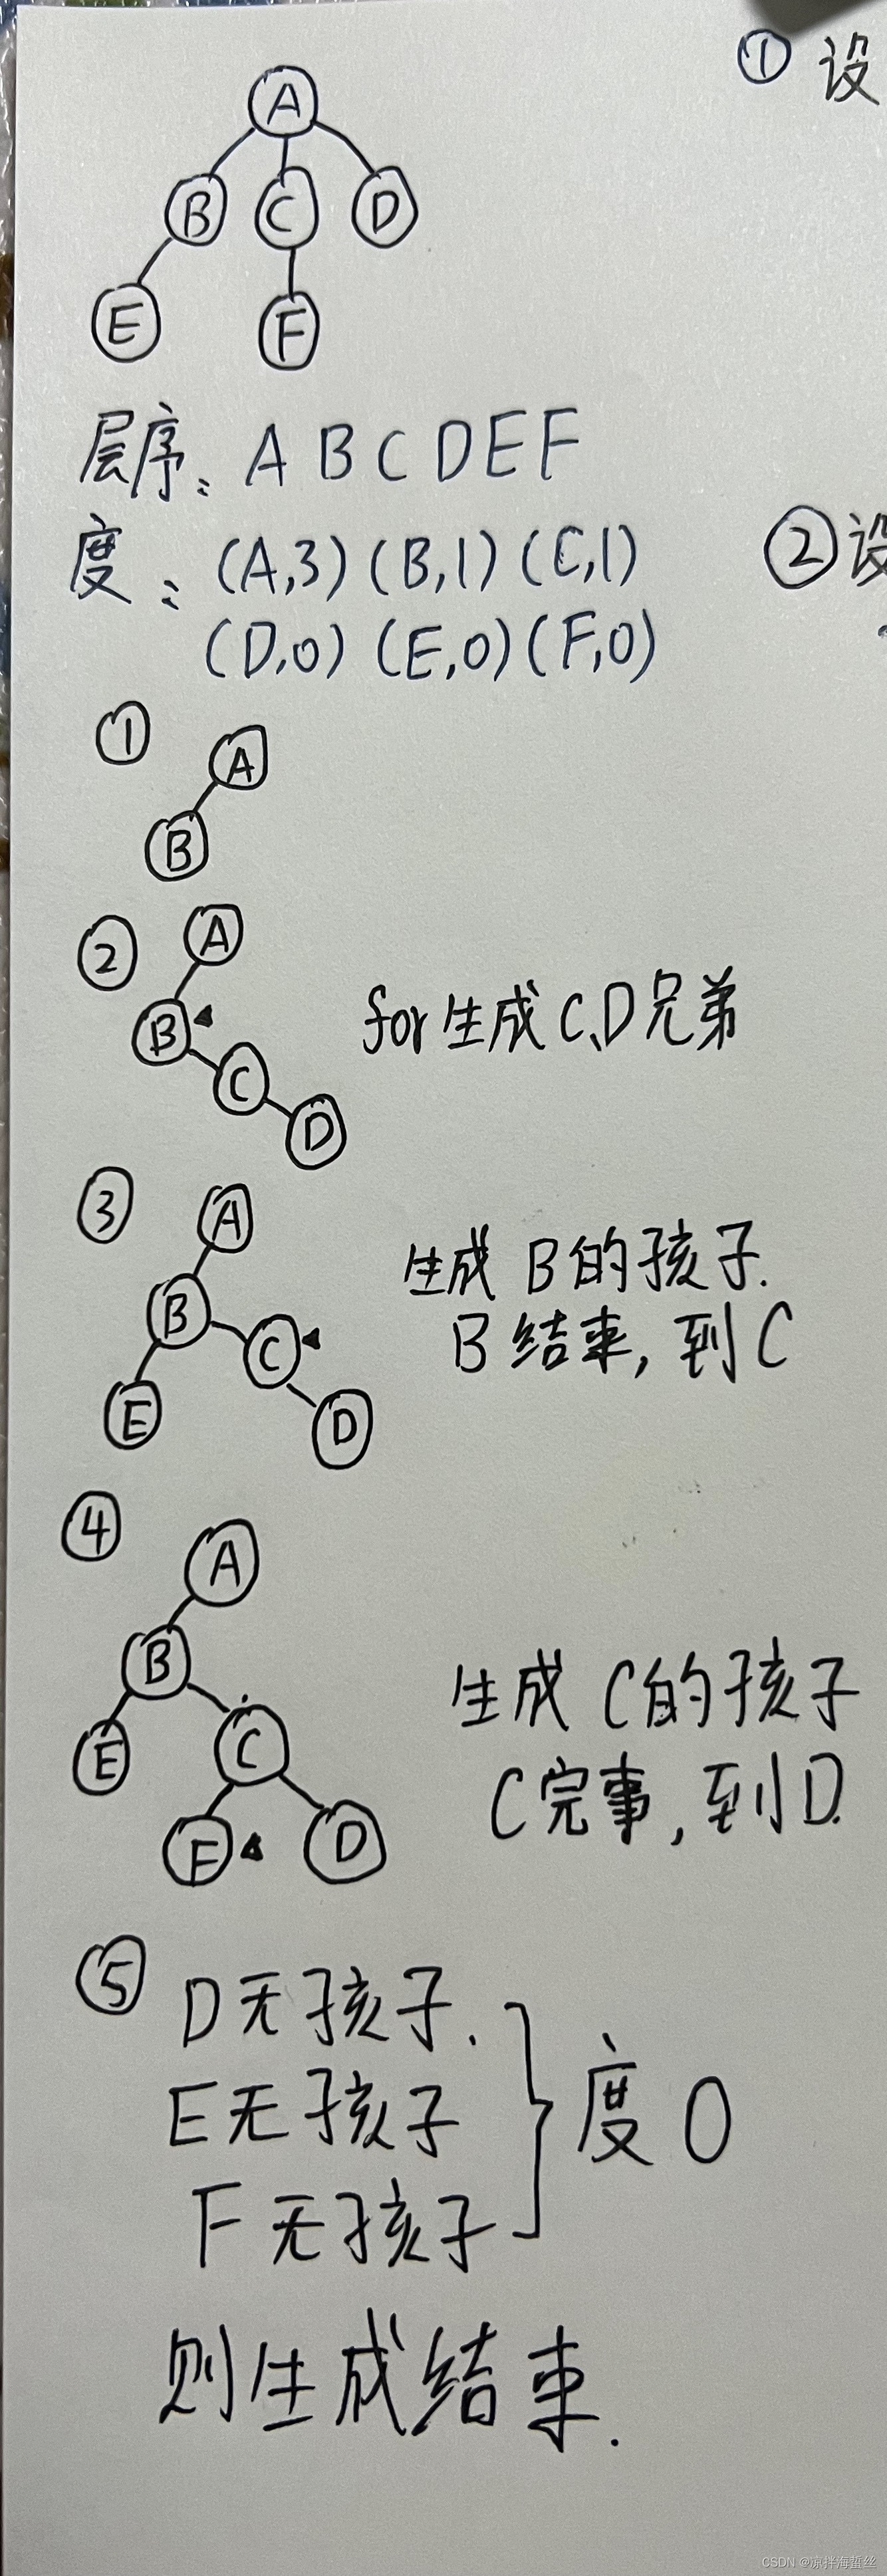 ① 设
A
B C D
E F
层序: A B C D E F
度: (A,3) (B,1) (C,1)
② 设
(D,0) (E,0) (F,0)
①
A
B
②
A
B
C
D
for 生成 C、D兄弟
③
A
B
C
E
D
生成 B 的孩子.
B 结束, 到 C
④
A
B
E
C
F
D
生成 C的孩子
C完事, 到D.
⑤ D无孩子.
E无孩子
F无孩子
度 0
则生成结束.
CSDN @凉拌海蜇丝